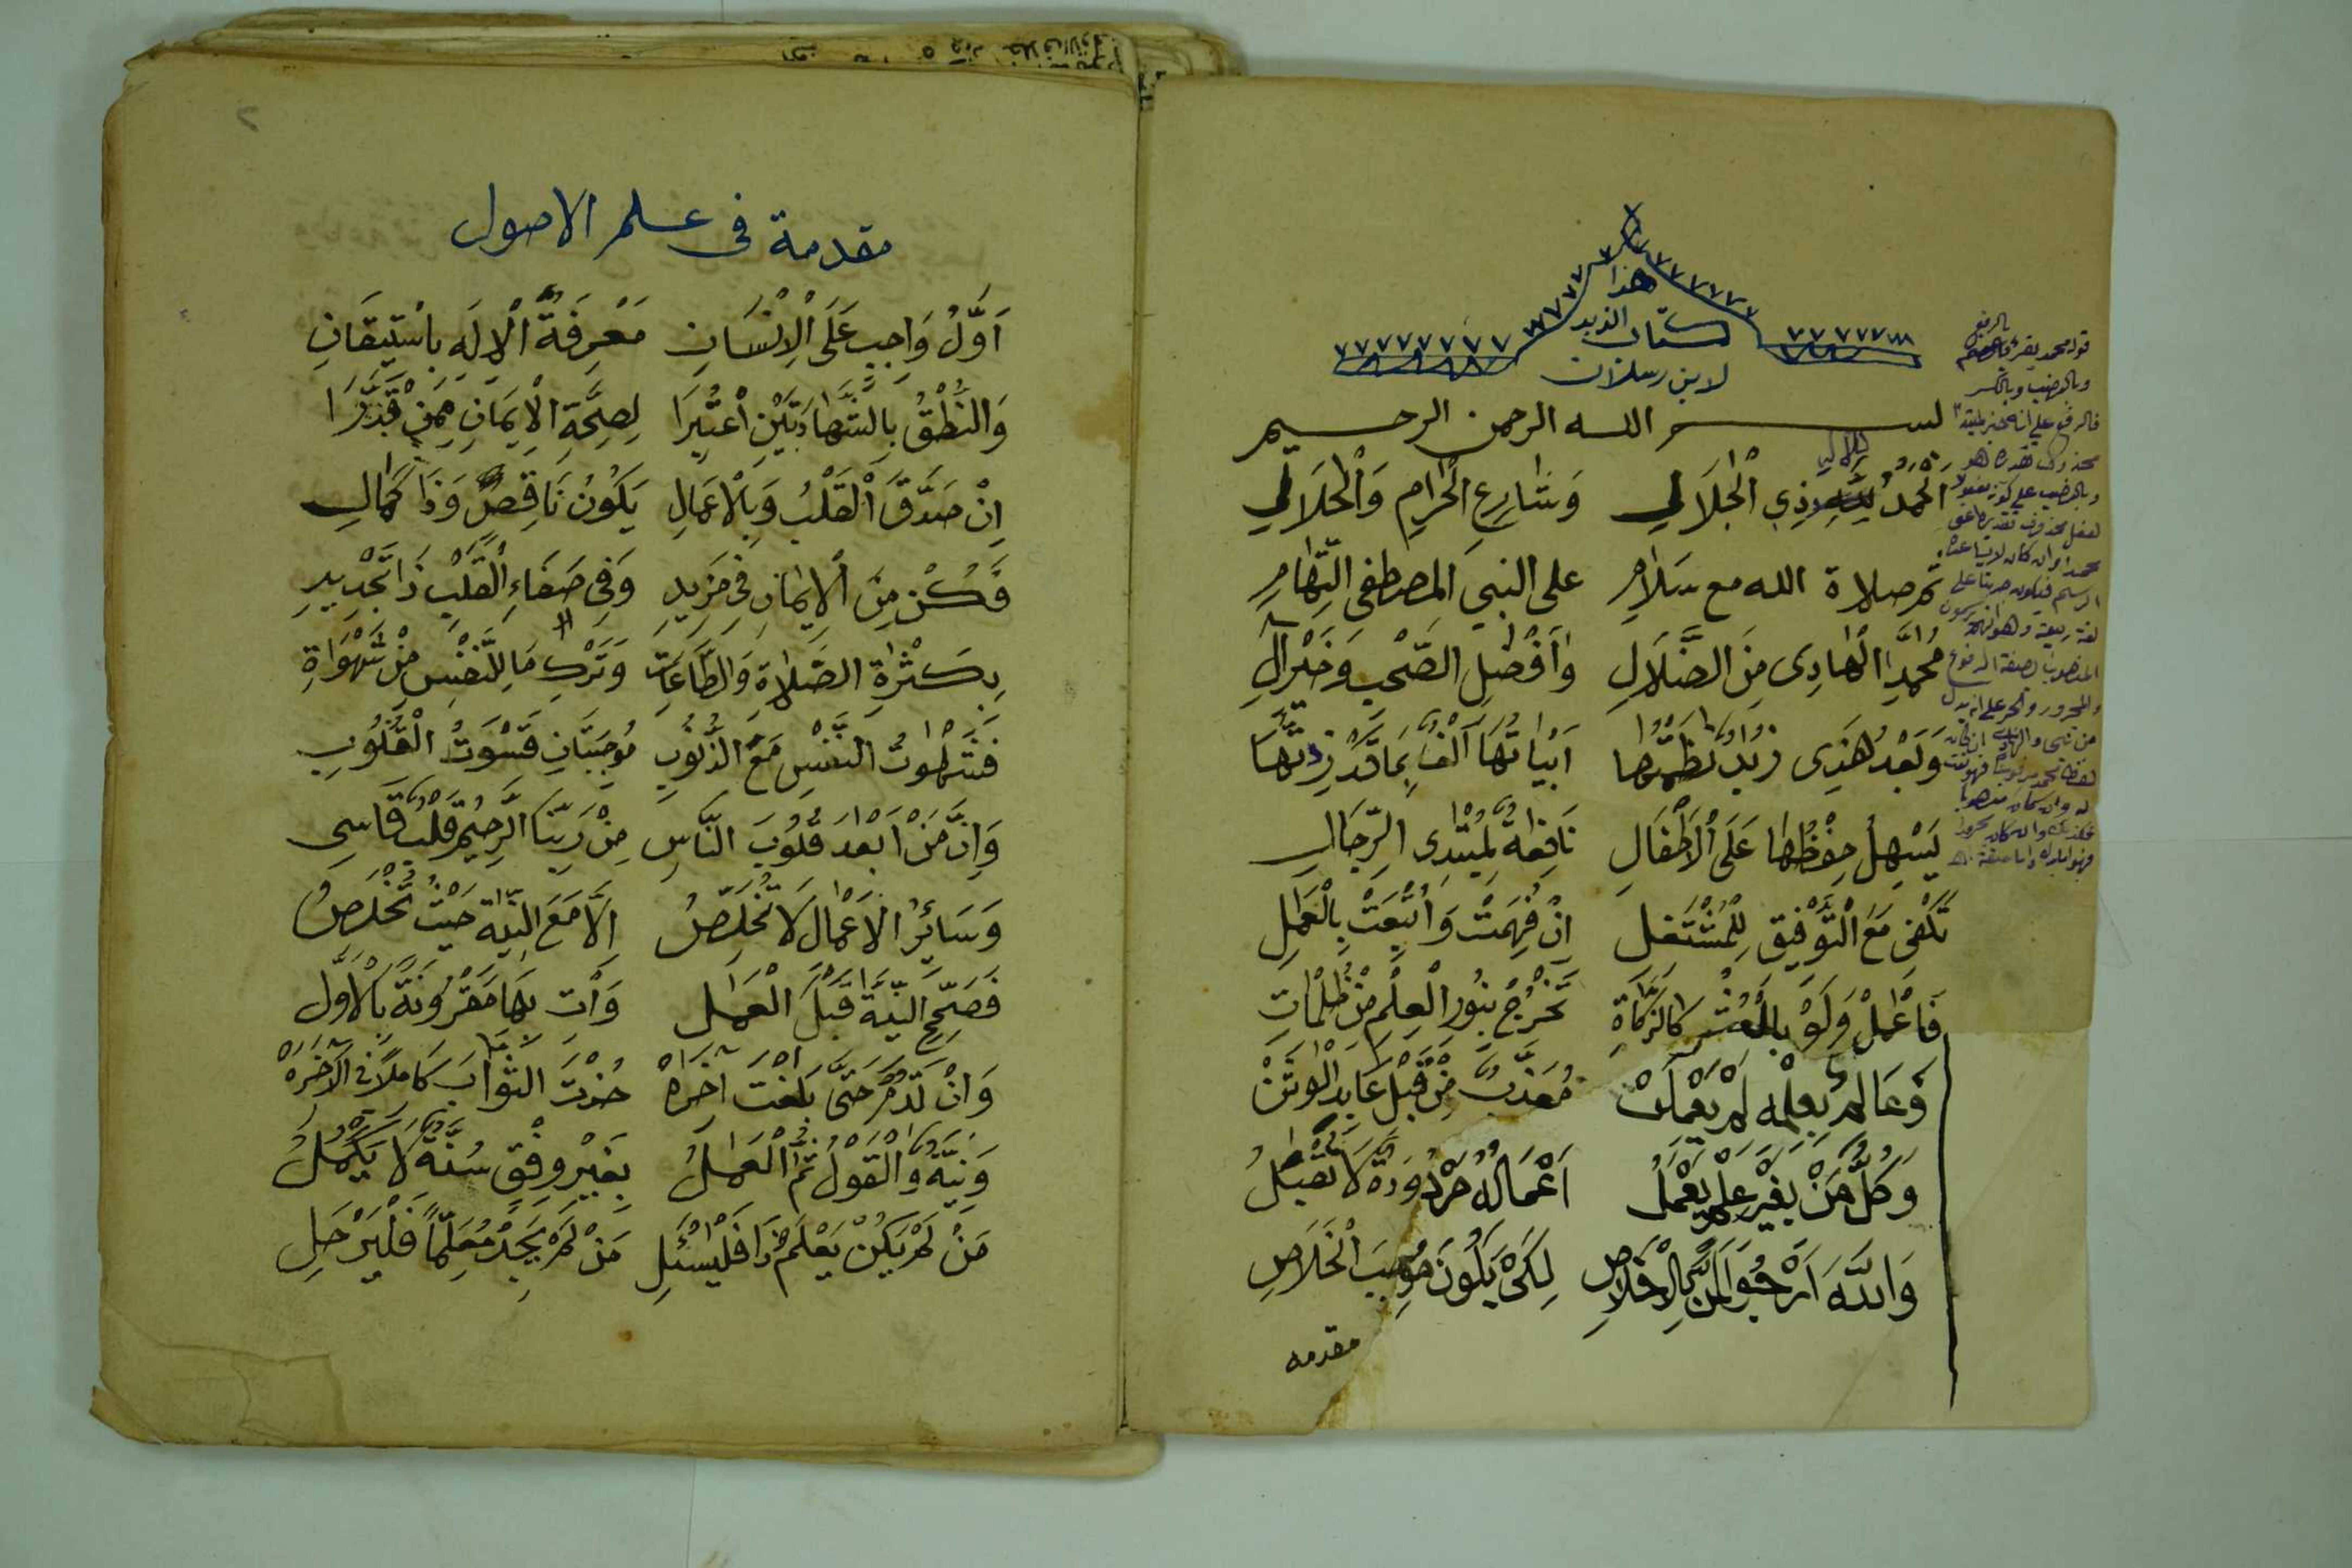 هذا
كتاب الزبد
لابن رسلان
بسم الله الرحمن الرحيم
اَلْحَمْدُ للإله ذِي الْجَلَالِي وَشَارِعِ الْحَرَامِ وَالْحَلَالِي
ثم صلاة الله مع سَلَامِ على النبي المصطفى التِّهَامِ
مُحَمَّدِ الْهَادِى مِنَ الضَّلَالِ وَاَفْضَلِ الصَّحْبِ وَخَيْرِ آلِ
وَبَعْدُ هٰذِى زُبَدٌ نَظَمْتُهَا اَبْيَاتُهَا اَلْفٌ بِمَا قَدْ زِدْتُهَا
يَسْهُلُ حِفْظُهَا عَلَى الْاَطْفَالِ نَافِعَةٌ لِمُبْتَدِى الرِّجَالِ
تَكْفِى مَعَ الْتَّوْفِيقِ لِلْمُشْتَغِلِ اِنْ فُهِمَتْ وَاُتْبِعَتْ بِالْعَمَلِ
فَاعْمَلْ وَلَوْ بِالْعُشْرِ كَالزَّكَاةِ تَخْرُجْ بِنُورِ الْعِلْمِ مِنْ ظُلُمَاتِ
وَعَالِمٌ بِعِلْمِهِ لَمْ يَعْمَلَنْ مُعَذَّبٌ مِنْ قَبْلِ عَابِدِ الْوَثَنْ
وَكُلُّ مَنْ بِغَيْرِ عِلْمٍ يَعْمَلُ اَعْمَالُهُ مَرْدُودَةٌ لَا تُقْبَلُ
وَاللّٰهَ اَرْجُو الْمَنَّ بِالْاِخْلَاصِ لِكَىْ يَكُونَ مُوجِبَ الْخَلَاصِ
مقدمه
قوله محمد يقرئ بالرفع
وبالنصب وبالكسر
فالرفع على انه خبر لمبتدا
محذوف تقديره هو
وبالنصب على كونه مفعولا
لفعل محذوف تقديره اعنى
٢
مقدمة فى علم الاصول
اَوَّلُ وَاجِبٍ عَلَى الْاِنْسَانِ مَعْرِفَةُ الْاِلَهِ بِاسْتِيقَانِ
وَالنُّطْقُ بِالشَّهَادَتَيْنِ اعْتُبِرَا لِصِحَّةِ الْاِيمَانِ مِمَّنْ قَدَرَا
اِنْ صَدَّقَ الْقَلْبُ وَبِالْاَعْمَالِ يَكُونُ نَاقِصً وَذَا كَمَالِ
فَكُنْ مِنَ الْاِيمَانِ فِى مَزِيدِ وَفِى صَفَاءِ الْقَلْبِ ذَا تَجْدِيدِ
بِكَثْرَةِ الصَّلَاةِ وَالطَّاعَاتِ وَتَرْكِ مَا لِلنَّفْسِ مِنْ شَهْوَاةِ
فَشَهْوَتُ النَّفْسِ مَعَ الذُّنُوبِ مُوجِبَتَانِ قَسْوَتُ الْقُلُوبِ
وَاِنَّ مَنْ اَبْعَدَ قُلُوبَ النَّاسِ مِنْ رَبِّنَا الرَّحِيمِ قَلْبٌ قَاسِى
وَسَائِرُ الْاَعْمَالِ لَا تُخَلِّصُ اِلَّا مَعَ النِّيَّةِ حَيْثُ تُخْلَصُ
فَصَحِّحِ النِّيَّةَ قَبْلَ الْعَمَلِ وَأْتِ بِهَا مَقْرُونَةً بِالْاَوَّلِ
وَاِنْ تَدُمْ حَتَّى بَلَغْتَ آخِرَهْ حُزْتَ الثَّوَابَ كَامِلًا فِى الْآخِرَهْ
وَنِيَّةٌ وَالْقَوْلُ ثُمَّ الْعَمَلُ بِغَيْرِ وِفْقِ سُنَّةٍ لَا يَكْمُلُ
مَنْ لَمْ يَكُنْ يَعْلَمُ ذَا فَلْيَسْئَلِ مَنْ لَمْ يَجِدْ مُعَلِّمًا فَلْيَرْحَلِ